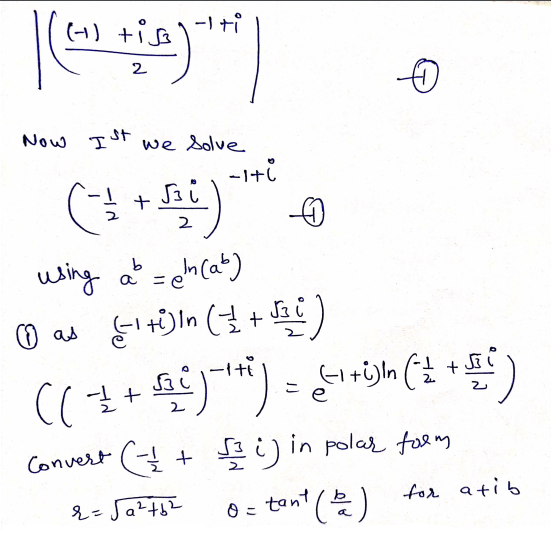 |(((-1) + i√3)/2)^(-1+i)| —①
Now Ist we solve
(-1/2 + √3i/2)^(-1+i) —①
using a^b = e^ln(a^b)
① as e^(-1+i)ln(-1/2 + √3i/2)
((-1/2 + √3i/2)^(-1+i)) = e^(-1+i)ln(-1/2 + √3i/2)
Convert (-1/2 + √3/2 i) in polar form
r = √a²+b² θ = tan⁻¹(b/a) for a+ib